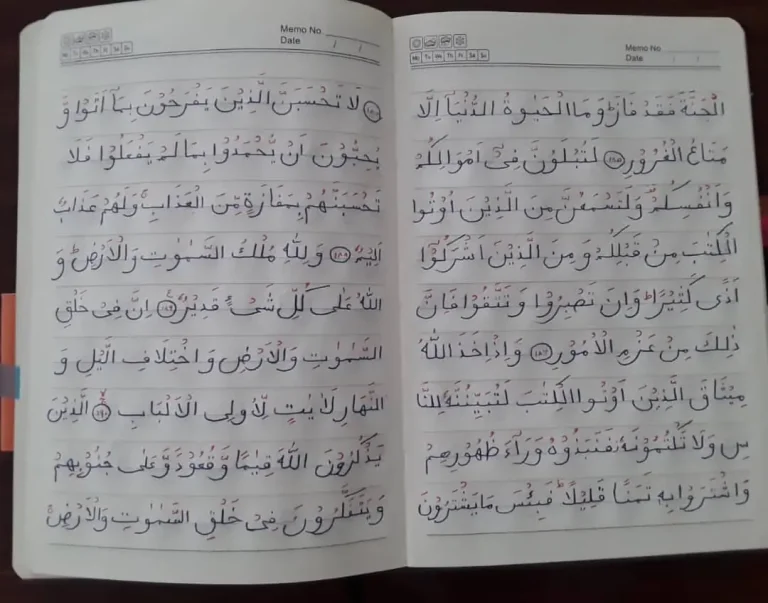 Memo No.
Mo Tu We Th Fr Sa Su
Date / /
الْجَنَّةَ فَقَدْ فَازَ ؕ وَمَا الْحَيٰوةُ الدُّنْيَاۤ اِلَّا
مَتَاعُ الْغُرُوْرِ ﴿۱۸۵﴾ لَتُبْلَوُنَّ فِىْۤ اَمْوَالِكُمْ
وَاَنْفُسِكُمْ وَلَتَسْمَعُنَّ مِنَ الَّذِيْنَ اُوْتُوا
الْكِتٰبَ مِنْ قَبْلِكُمْ وَمِنَ الَّذِيْنَ اَشْرَكُوْۤا
اَذًى كَثِيْرًا ؕ وَاِنْ تَصْبِرُوْا وَتَتَّقُوْا فَاِنَّ
ذٰلِكَ مِنْ عَزْمِ الْاُمُوْرِ ﴿۱۸۶﴾ وَاِذْ اَخَذَ اللّٰهُ
مِيْثَاقَ الَّذِيْنَ اُوْتُوا الْكِتٰبَ لَتُبَيِّنُنَّهٗ لِلنَّا
سِ وَلَا تَكْتُمُوْنَهٗ فَنَبَذُوْهُ وَرَآءَ ظُهُوْرِهِمْ
وَاشْتَرَوْا بِهٖ ثَمَنًا قَلِيْلًا ؕ فَبِئْسَ مَا يَشْتَرُوْنَ
Memo No.
Mo Tu We Th Fr Sa Su
Date / /
﴿۱۸۷﴾ لَا تَحْسَبَنَّ الَّذِيْنَ يَفْرَحُوْنَ بِمَاۤ اَتَوْا وَّ
يُحِبُّوْنَ اَنْ يُّحْمَدُوْا بِمَا لَمْ يَفْعَلُوْا فَلَا
تَحْسَبَنَّهُمْ بِمَفَازَةٍ مِّنَ الْعَذَابِ ۚ وَلَهُمْ عَذَابٌ
اَلِيْمٌ ﴿۱۸۸﴾ وَلِلّٰهِ مُلْكُ السَّمٰوٰتِ وَالْاَرْضِ ؕ وَ
اللّٰهُ عَلٰى كُلِّ شَىْءٍ قَدِيْرٌ ﴿۱۸۹﴾ اِنَّ فِىْ خَلْقِ
السَّمٰوٰتِ وَالْاَرْضِ وَاخْتِلَافِ الَّيْلِ وَ
النَّهَارِ لَاٰيٰتٍ لِّاُولِى الْاَلْبَابِ ﴿۱۹۰﴾ الَّذِيْنَ
يَذْكُرُوْنَ اللّٰهَ قِيٰمًا وَّقُعُوْدًا وَّعَلٰى جُنُوْبِهِمْ
وَيَتَفَكَّرُوْنَ فِىْ خَلْقِ السَّمٰوٰتِ وَالْاَرْضِ ۚ